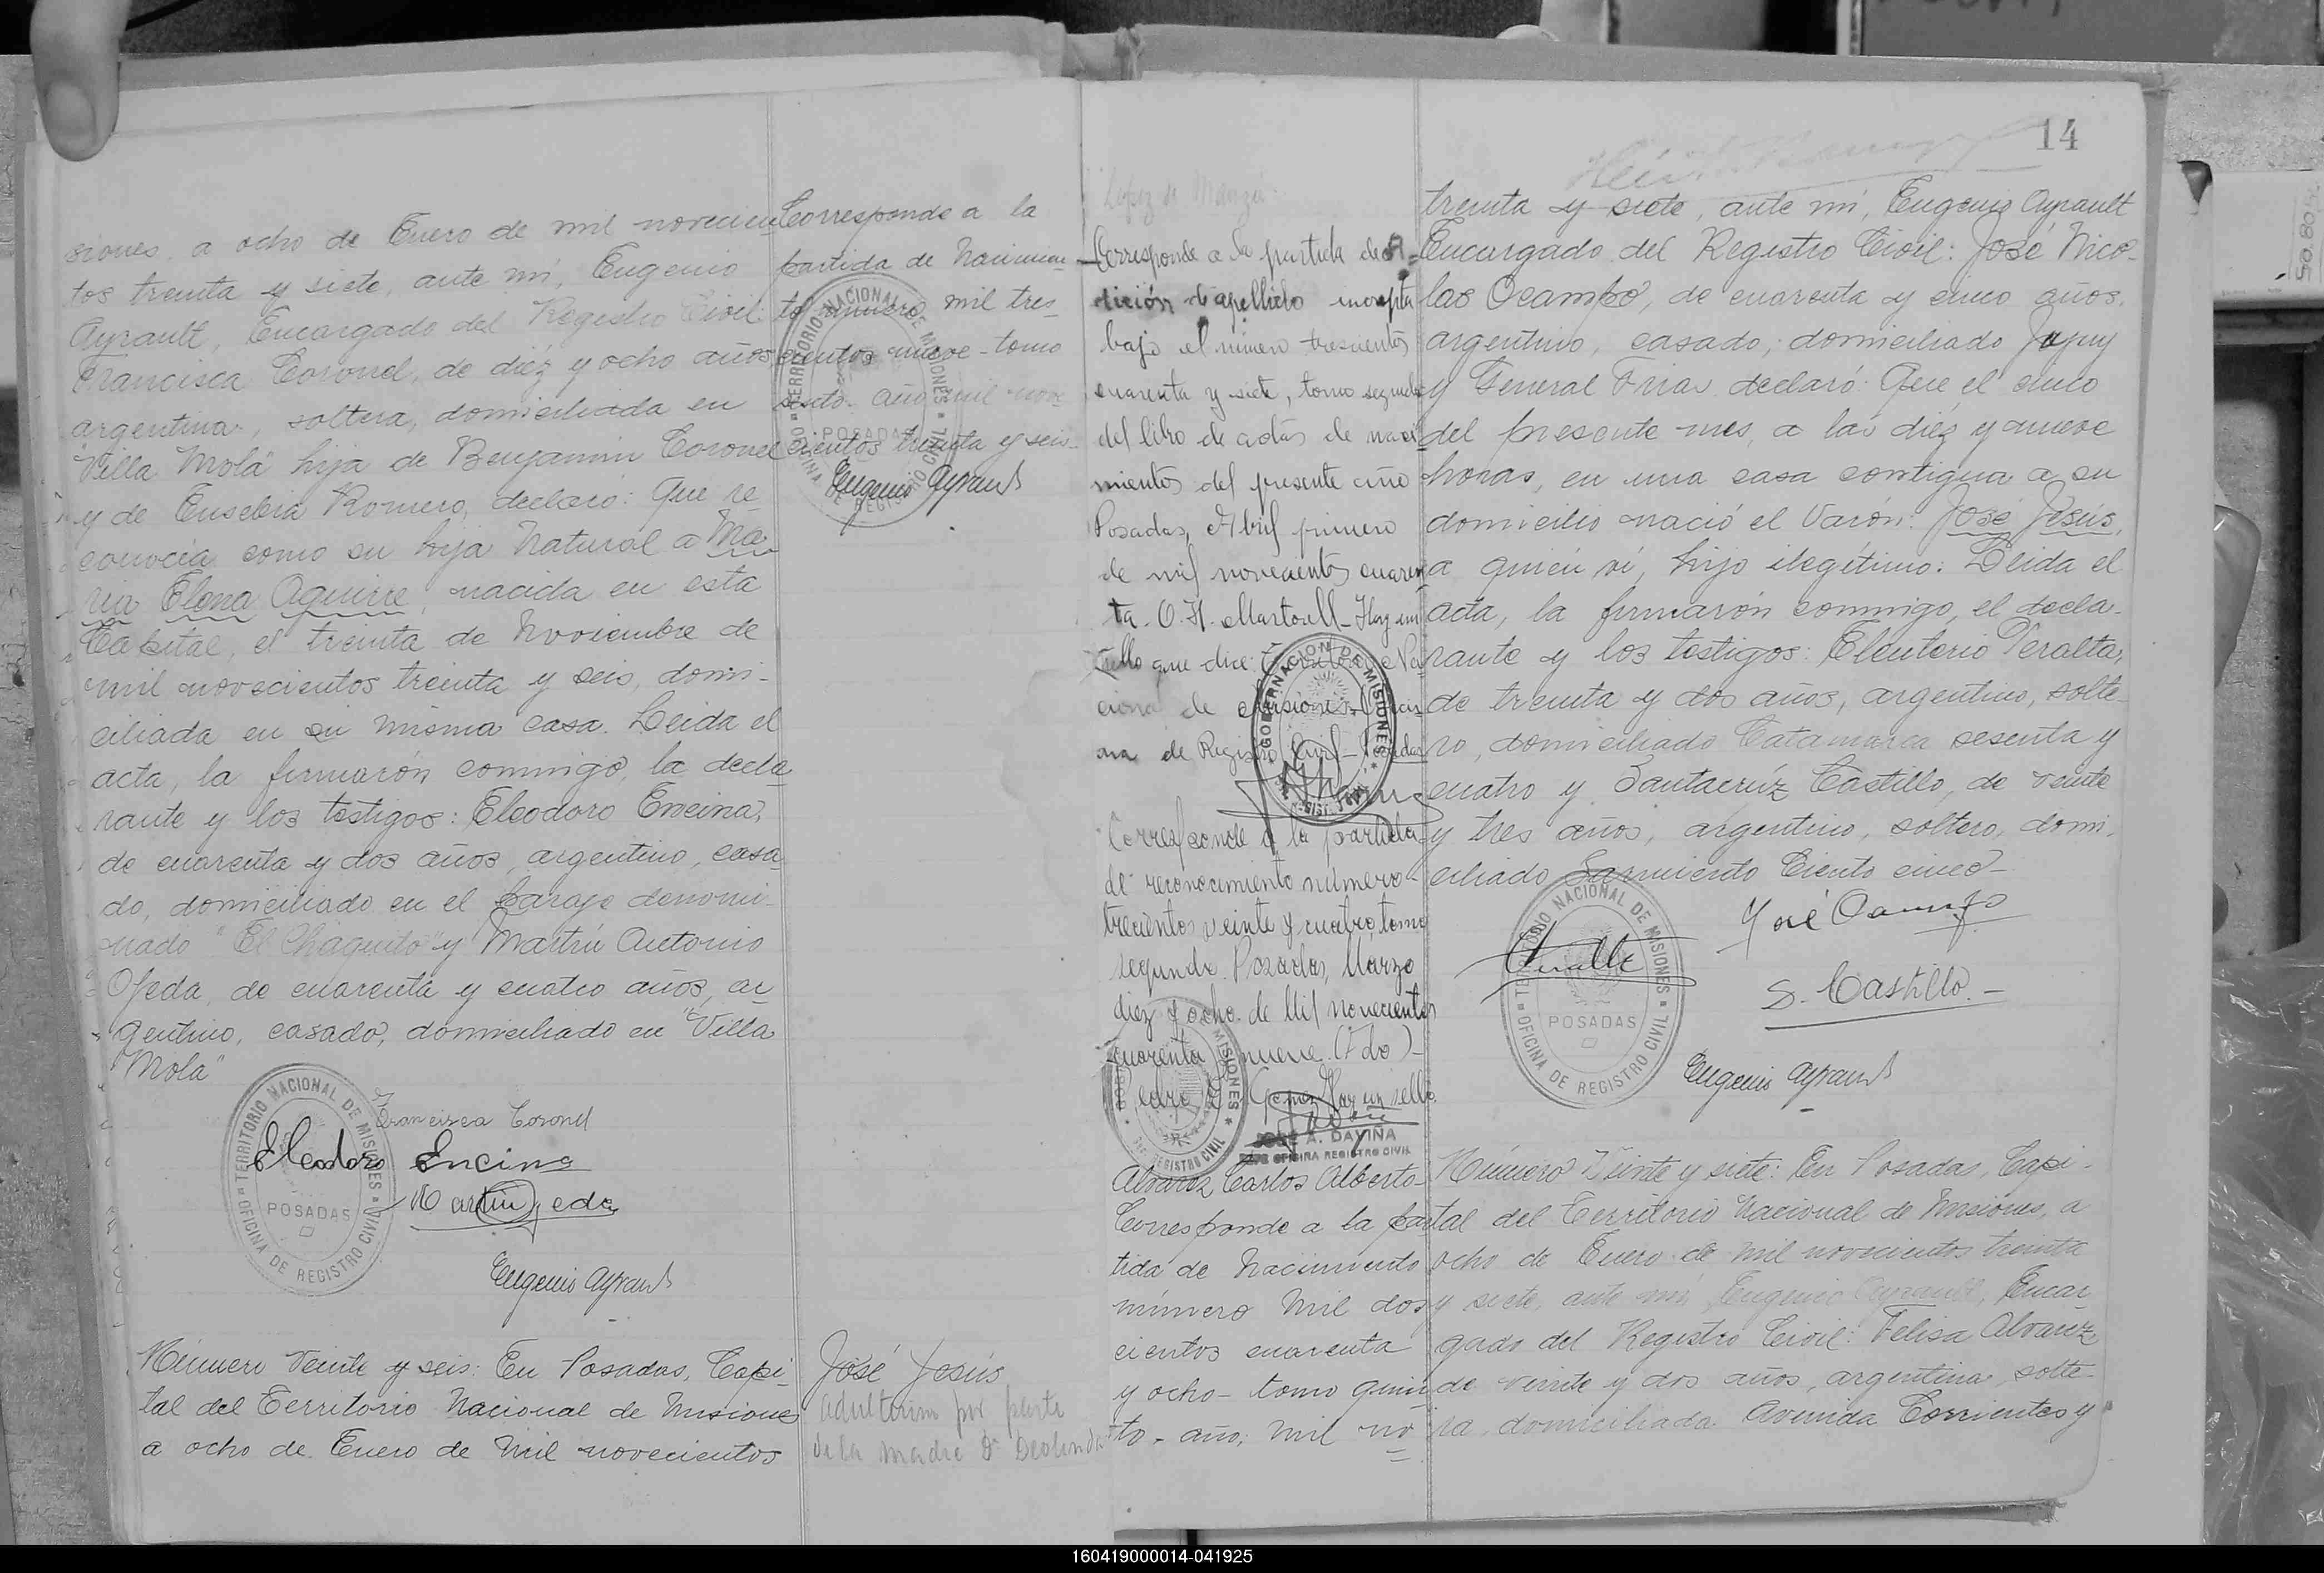 siones, a ocho de Enero de mil novecien
tos treinta y siete, ante mi, Eugenio
Ayrault, Encargado del Registro Civil:
Francisca Coronel, de diéz y ocho años
argentina, soltera, domiciliada en
"Villa Mola" hija de Benjamin Coronel
y de Eusebia Romero, declaró: Que re
conocia como su hija Natural a Ma
ria Elena Aguirre, nacida en esta
Capital, el treinta de Noviembre de
mil novecientos treinta y seis, domi-
ciliada en su misma casa. Leida el
acta, la firmarón conmigo, la decla
rante y los testigos: Eleodoro Encina,
de cuarenta y dos años, argentino, casa
do, domiciliado en el paraje denomi-
nado "El Chaquito" y Martin Antonio
Ojeda, de cuarenta y cuatro años, ar
gentino, casado, domiciliado en "Villa
Mola"
Francisca Coronel
Eleodoro Encina
Martin Ojeda
Eugenio Ayrault
TERRITORIO NACIONAL DE MISIONES
POSADAS
OFICINA DE REGISTRO CIVIL
Número Veinte y seis: En Posadas, Capi-
tal del Territorio Nacional de Misiones
a ocho de Enero de Mil novecientos
Corresponde a la
partida de Nacimien-
to número mil tres-
cientos nueve - tomo
sexto. año mil nove
cientos treinta y seis-
Eugenio Ayrault
TERRITORIO NACIONAL DE MISIONES
POSADAS
OFICINA DE REGISTRO CIVIL
José Jesús
adulterino por parte
de la madre Dª Deolinda
14
Lopez de
Corresponde a la partida de A-
dición de apellido inscripta
bajo el número trescientos
cuarenta y siete, tomo segundo
del libro de actas de naci
mientos del presente año
Posadas, Abril primero
de mil novecientos cuaren
ta. O. H. Martorell - Hay un
sello que dice: Territorio Na
cional de Misiones - Ofici
na de Registro Civil - Posadas
GOBERNACION DE MISIONES
Corresponde a la partida
de reconocimiento número-
trecientos veinte y cuatro, tomo
segundo. Posadas, Marzo
diez y ocho de Mil novecientos
cuarenta y nueve. (Fdo)-
Pedro Gomez Hay un sello
MISIONES
REGISTRO CIVIL
JOSÉ A. DAVIÑA
JEFE OFICINA REGISTRO CIVIL
Alvarez Carlos Alberto-
Corresponde a la par
tida de Nacimiento
número Mil dos
cientos cuarenta
y ocho - tomo quin
to - año, mil no
treinta y siete, ante mi, Eugenio Ayrault
Encargado del Registro Civil: José Nico-
las Ocampo, de cuarenta y cinco años,
argentino, casado, domiciliado Jujuy
y General Frias declaró: Que el cinco
del presente mes, a las diéz y nueve
horas, en una casa contigua a su
domicilio nació el Varón: José Jesús,
a quién ví, hijo ilegítimo: Leida el
acta, la firmarón conmigo, el decla-
rante y los testigos: Eleuterio Peralta,
de treinta y dos años, argentino, solte-
ro, domiciliado Catamarca sesenta y
cuatro y Santacrúz Castillo, de veinte
y tres años, argentino, soltero, domi-
ciliado Sarmiento Ciento cinco-
José Ocampo
S. Castillo.-
Eugenio Ayrault
TERRITORIO NACIONAL DE MISIONES
POSADAS
OFICINA DE REGISTRO CIVIL
Número Veinte y siete: En Posadas, Capi-
tal del Territorio Nacional de Misiones, a
ocho de Enero de Mil novecientos treinta
y siete, ante mi, Eugenio Ayrault, Encar
gado del Registro Civil: Felisa Alvarez
de veinte y dos años, argentina, solte-
ra, domiciliada Avenida Corrientes y
160419000014-041925